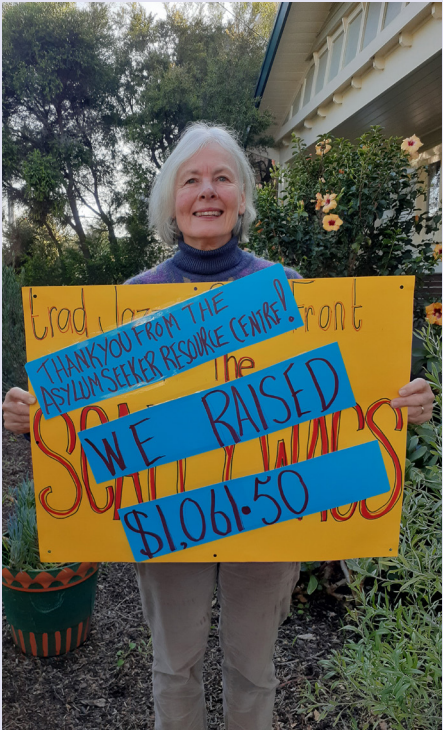 trad Jaz Front
THANKYOU FROM THE
ASYLUM SEEKER RESOURCE CENTRE!
The
WE RAISED
$1,061.50